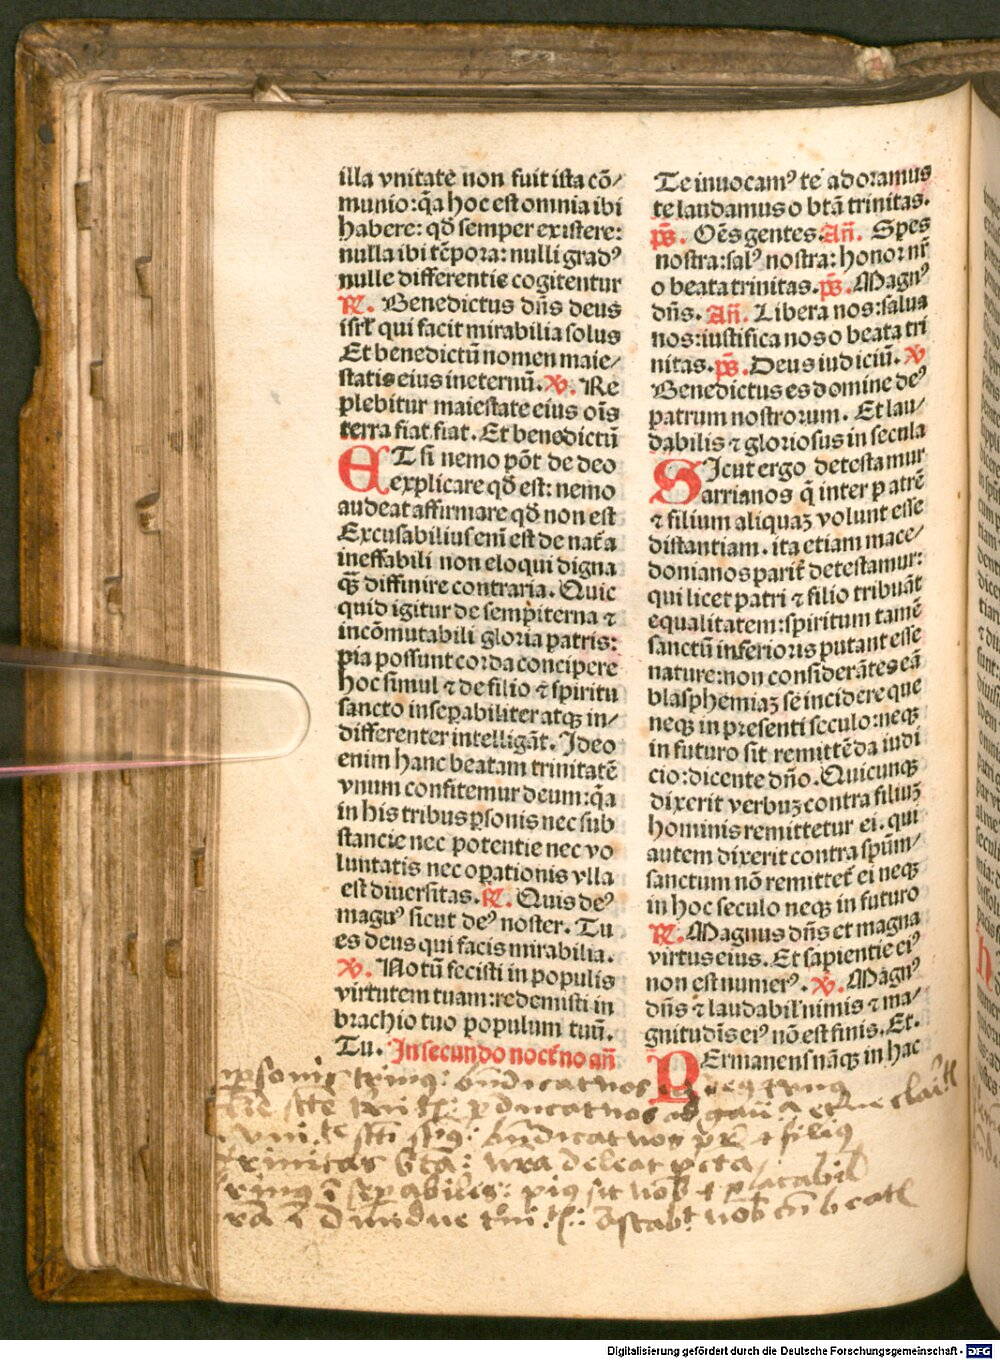 illa vnitatē non fuit ista cō/
munio: q̄a hoc est omnia ibi
habere: qđ semper existere:
nulla ibi tēpora: nulli gradꝰ
nulle differentie cogitentur
℟. Benedictus dn̄s deus
isrl̄ qui facit mirabilia solus
Et benedictū nomen maie/
statis eius in eternū. ℣. Re
plebitur maiestate eius oīs
terra fiat fiat. Et benedictū
ET si nemo pōt de deo
explicare qđ est: nemo
audeat affirmare qđ non est
Excusabilius enī est de nat̄a
ineffabili non eloqui digna
qȝ̄ diffinire contraria. Quic
quid igitur de sempiterna ⁊
incōmutabili gloria patris:
pia possunt corda concipere
hoc simul ⁊ de filio ⁊ spiritu
sancto inseꝑabiliter atqȝ in/
differenter intelligāt. Ideo
enim hanc beatam trinitatē
vnum confitemur deum: q̄a
in his tribus ꝑsonis nec sub
stancie nec potentie nec vo
luntatis nec oꝑationis vlla
est diuersitas. ℟. Quis deꝰ
magnꝰ sicut deꝰ noster. Tu
es deus qui facis mirabilia.
℣. Notū fecisti in populis
virtutem tuam: redemisti in
brachio tuo populum tuū.
Tu. In secundo noct̄no an̄
Te inuocamꝰ te adoramus
te laudamus o btā trinitas.
ps̄. Oēs gentes. An̄. Spes
nostra: salꝰ nostra: honor nr̄
o beata trinitas. ps̄. Magnꝰ
dn̄s. An̄. Libera nos: salua
nos: iustifica nos o beata tri
nitas. ps̄. Deus iudiciū. ℣
Benedictus es domine deꝰ
patrum nostrorum. Et lau/
dabilis ⁊ gloriosus in secula
SIcut ergo detestamur
arrianos q̄ inter patrē
⁊ filium aliquaȝ volunt esse
distantiam. ita etiam mace/
donianos parit̄ detestamur:
qui licet patri ⁊ filio tribuāt
equalitatem: spiritum tamē
sanctū inferioris putant esse
nature: non considerātes eā
blasphemiaȝ se incidere que
neqȝ in presenti seculo: neqȝ
in futuro sit remittēda iudi
cio: dicente dn̄o. Quicunqȝ
dixerit verbuȝ contra filiuȝ
hominis remittetur ei. qui
autem dixerit contra spūm/
sanctum nō remittet̄ ei neqȝ
in hoc seculo neqȝ in futuro
℟. Magnus dn̄s et magna
virtus eius. Et sapientie eiꝰ
non est numerꝰ. ℣. Magnꝰ
dn̄s ⁊ laudabil̄ nimis ⁊ ma/
gnitudīs eiꝰ nō est finis. Et.
PErmanens nāqȝ in hac
ꝑsonis trinꝰ: bn̄dicat nos
trinitas